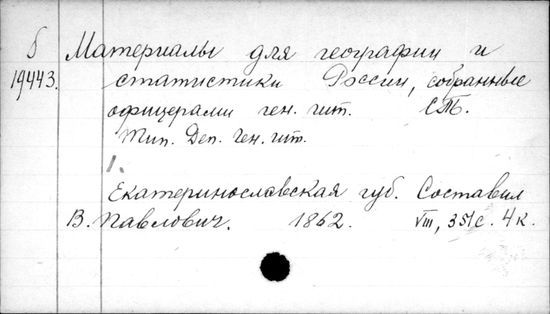 б Материалы для географии и
19443. статистики России, собранные
офицерами ген. шт. СПб.
Тип. Деп. Ген. шт.
1.
Екатеринославская губ. Составил
В. Павлович. 1862. VIII, 351 с. 4 к.